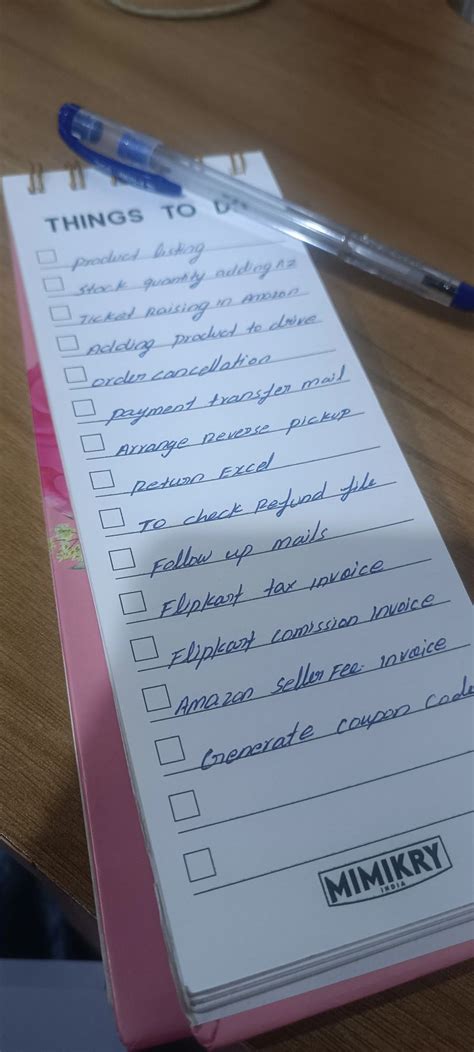 THINGS TO DO
Product listing
Stock quantity adding AZ
Ticket Raising in Amazon
Adding Product to drive
order cancellation
payment transfer mail
Arrange Reverse pickup
Return Excel
To check Refund file
Follow up mails
Flipkart tax invoice
Flipkart comission invoice
Amazon Seller Fee invoice
Generate coupon Code
MIMIKRY
INDIA